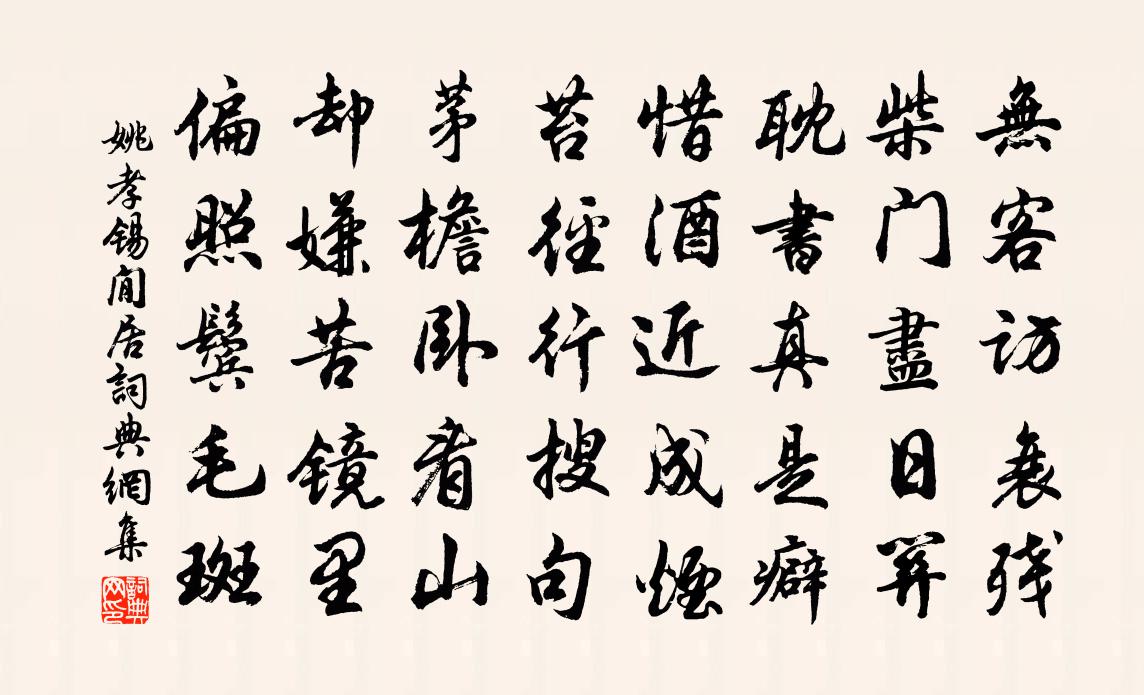 無客訪衰残
柴门盡日関
耽書真是癖
惜酒近成慳
苔徑行搜句
茅檐卧看山
却嫌苦镜里
偏照鬓毛斑
姚孝锡閒居詞典網集
詞典网印